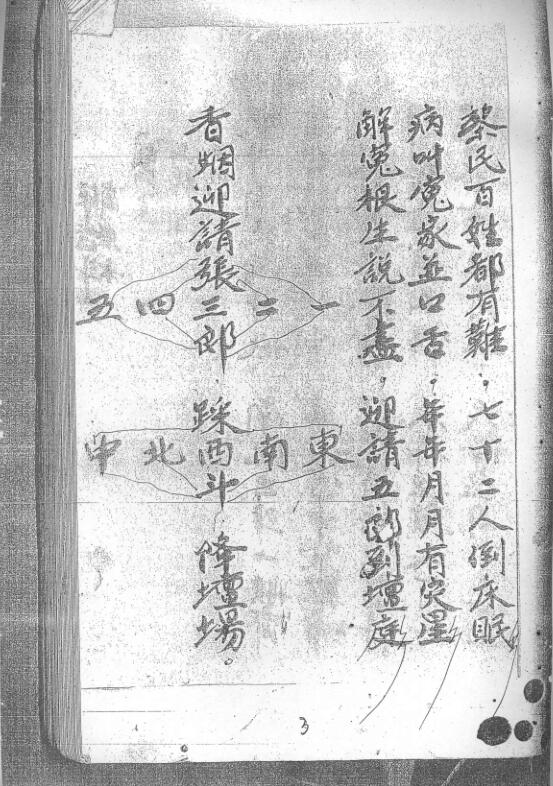 黎民百姓都有難。七十二人倒床眠
病叫冤家並口舌。年年月月有災星
解冤根生說不盡。迎請五郎到壇庭
香烟迎請張三郎 踩西斗 降壇場。
一 二 四 五
東 南 北 中
3